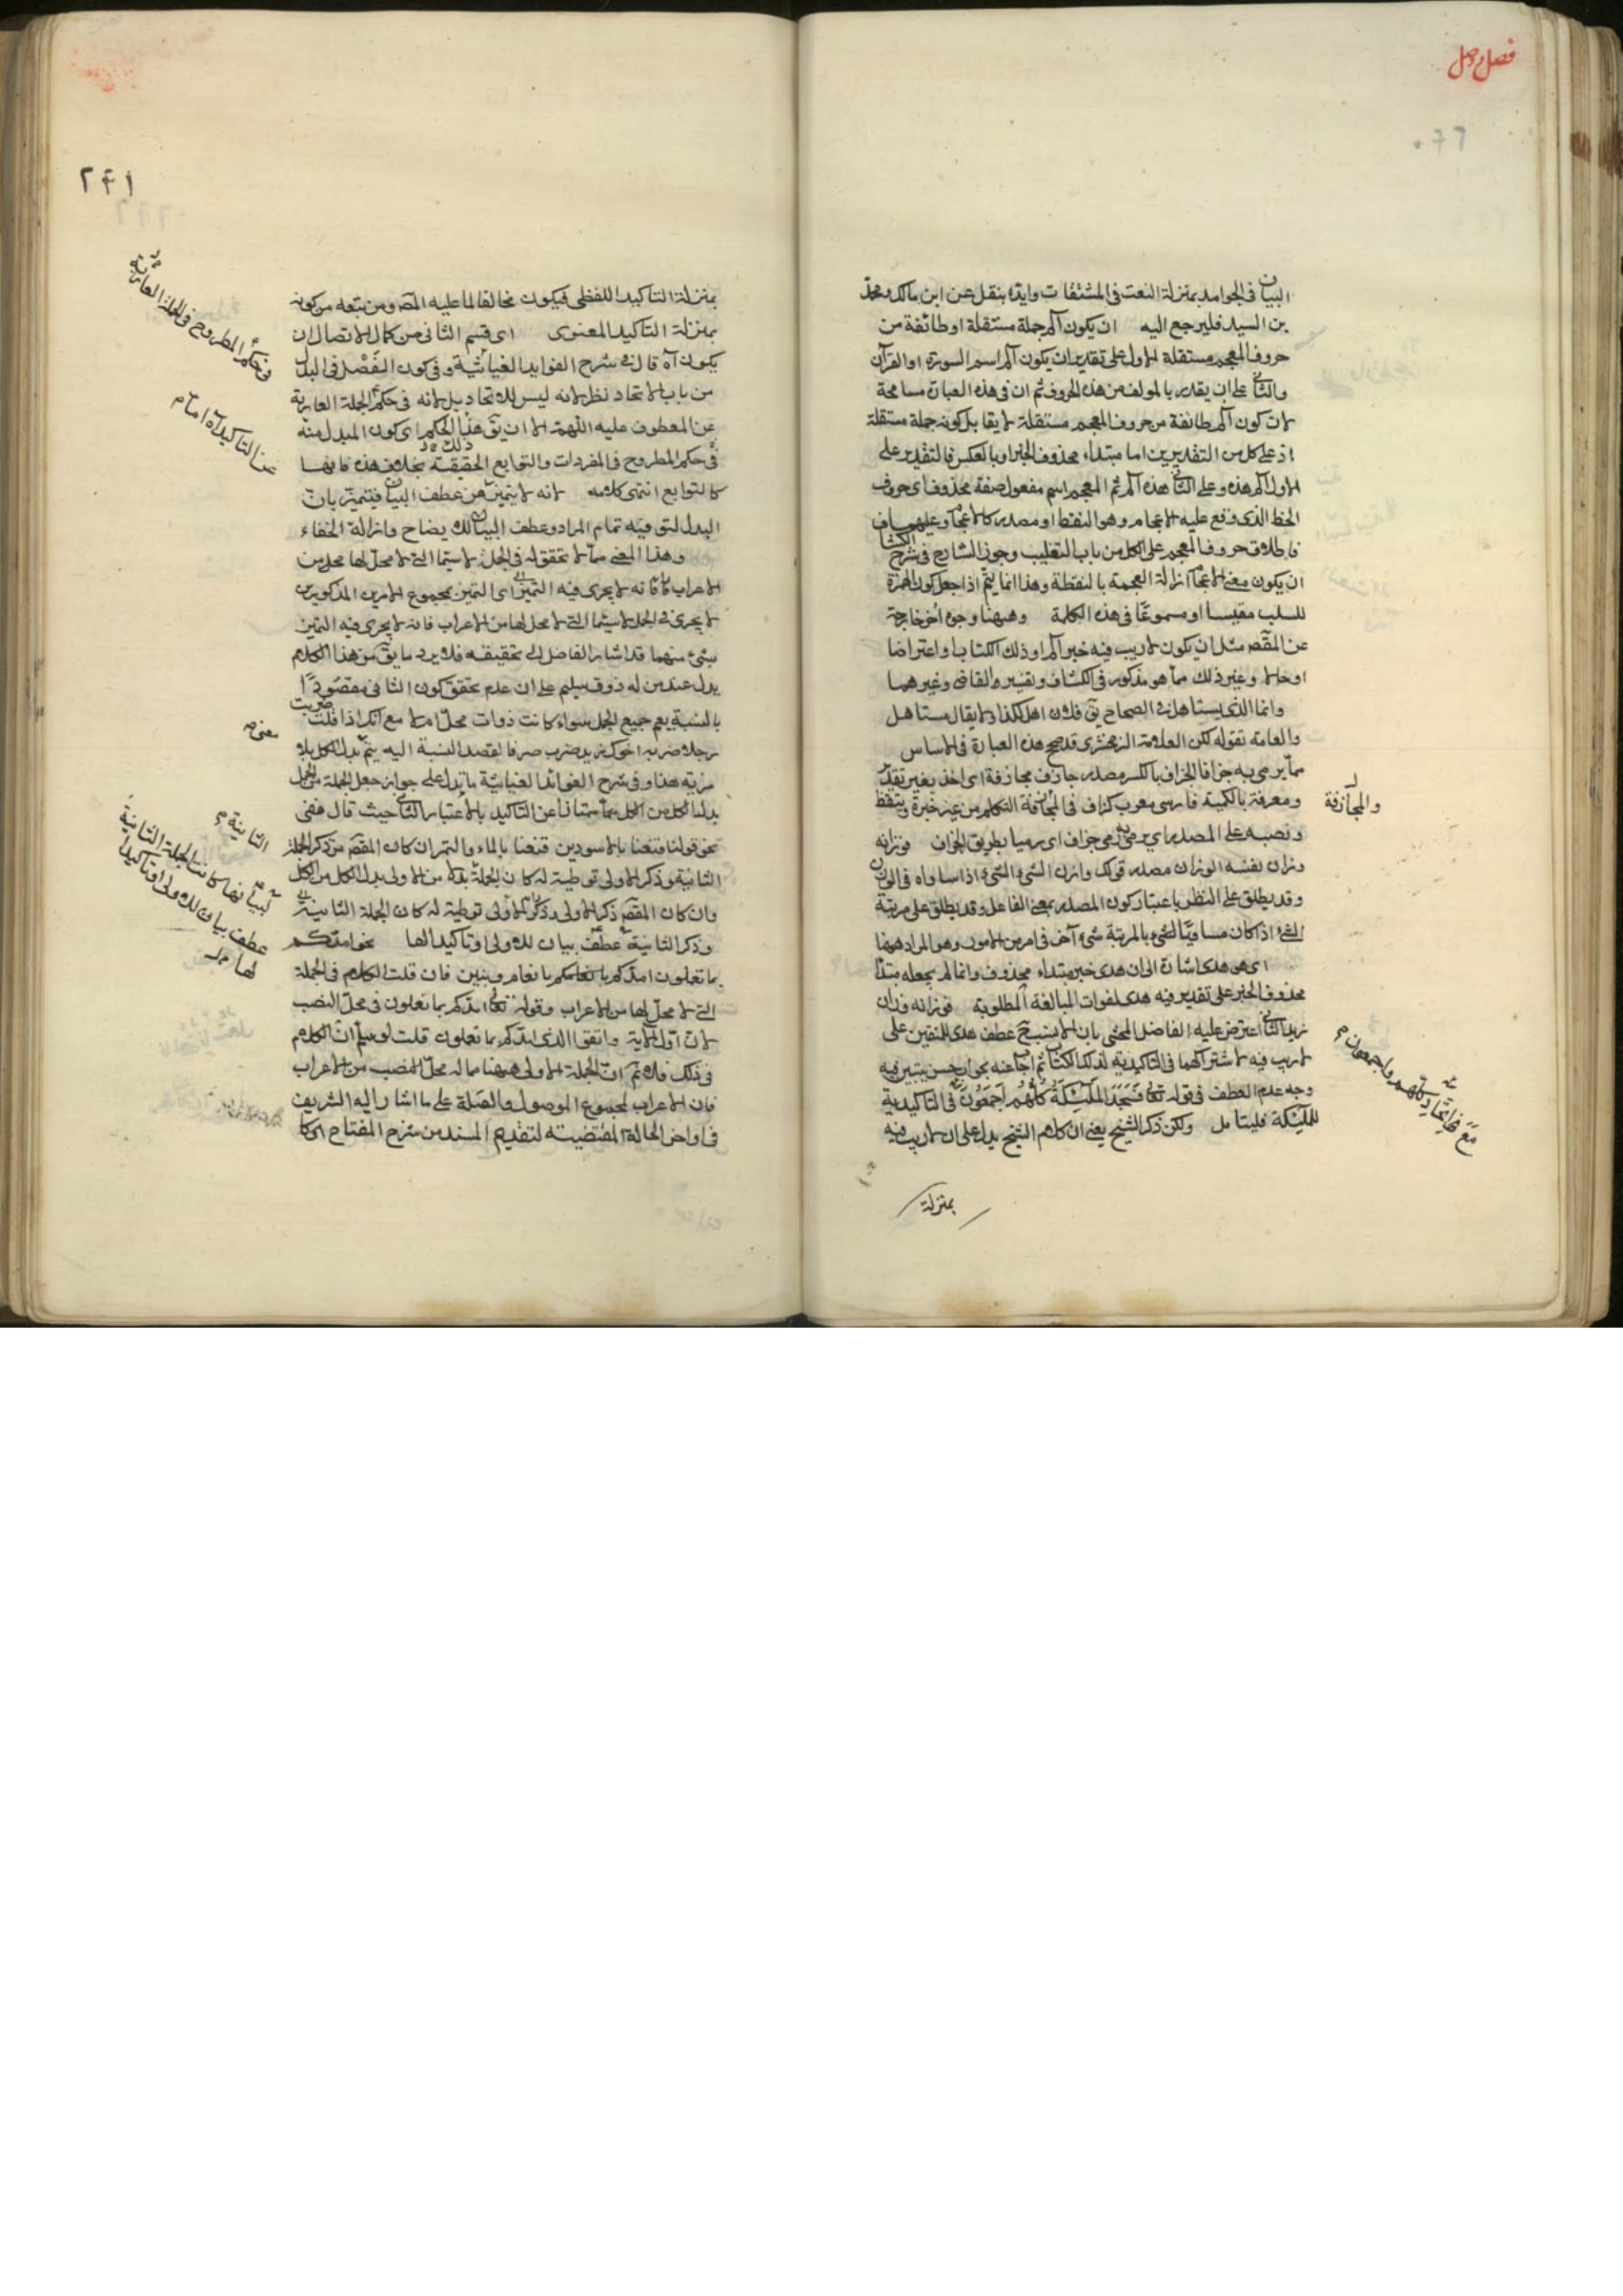 فصل وصل
البيان في الجوامد بمنزلة النعت في المشتقات وايده بنقل عن ابن مالك ومحمد
بن السيد فليرجع اليه ان يكون آلم جملة مستقلة او طائفة من
حروف المعجم مستقلة الاول على تقدير ان يكون آلم اسم السورة او القرآن
والثاني على ان يقدر بالمولف من هذه الحروف ثم ان في هذه العبارة مسامحة
لان كون آلم طائفة من حروف المعجم مستقلة لا يقابل كونه جملة مستقلة
اذ على كل من التقديرين اما مبتداء محذوف الخبر او بالعكس فالتقدير على
الاول آلم هذه وعلى الثاني هذه آلم ثم المعجم اسم مفعول صفة محذوف اى حروف
الخط الذى وقع عليه الاعجام وهو النقط او مصدر كالاعجام وعليهما
فاطلاق حروف المعجم على الكل من باب التغليب وجوز الشارح في شرح الكشاف
ان يكون معنى الاعجام ازالة العجمة بالنقطة وهذا انما يتم اذا جعل كون الهمزة
للسلب مقيسا او مسموعا في هذه الكلمة وههنا وجوه اخر خارجة
عن المقصد مثل ان يكون لا ريب فيه خبر آلم او ذلك الكتاب او اعتراضا
او حالا وغير ذلك مما هو مذكور في الكشاف وتفسير القاضى وغيرهما
وانما الذى يستاهل في الصحاح يق فلان اهل لكذا ولا يقال مستاهل
والعامة تقوله لكن العلامة الزمخشرى قد صحح هذه العبارة في الاساس
مما يرمى به جزافا الجزاف بالكسر مصدر جازف مجازفة اى اخذ بغير تقدير
ومعرفة بالكمية فارسى معرب كزاف في المجازفة التكلم من غير خبرة وتيقظ
والمجازفة
ونصبه على المصدر اى يرمى رمى جزاف اى رميا بطريق الجزاف فوزانه
وزان نفسه الوزان مصدر قولك وازن الشئ الشئ اذا ساواه في الوزن
وقد يطلق على النظر باعتبار كون المصدر بمعنى الفاعل وقد يطلق على مرتبة
الشئ اذا كان مساويا لشئ بالمرتبة شئ آخر في امر من الامور وهو المراد ههنا
اى هو هدى اشارة الى ان هدى خبر مبتداء محذوف وانما لم يجعله مبتدأ
محذوف الخبر على تقدير فيه هدى لفوات المبالغة المطلوبة فوزانه وزان
زيد الثاني اعترض عليه الفاضل المحشى بان لا يستحق عطف هدى للمتقين على
لا ريب فيه لاشتراكهما في التاكيدية لذلك الكتاب ثم اجاب عنه بجواب حسن يتبين فيه
وجه عدم العطف في قوله تعالى فسجد الملئكة كلهم اجمعون في التاكيدية
مع اتحاد كلهم واجمعون م
للملئكة فليتامل ولكن ذكر الشيخ يعنى ان كلام الشيخ يدل على ان لا ريب فيه
بمنزلة
٢٦١
بمنزلة التاكيد اللفظى فيكون مخالفا لما عليه المصر ومن تبعه من كونه
بمنزلة التاكيد المعنوى اى قسم الثانى من كمال الاتصال ان
يكون آه قال في شرح الفوايد الغياثية وفي كون الفصل في البدل
من باب الاتحاد نظر لانه ليس للاتحاد بل لانه في حكم الجملة العارية
في حكم المطروح في الجملة العارية
عن المعطوف عليه اللهمة الا ان يق هذا الحكم اى كون المبدل منه
في حكم المطروح في المفردات والتوابع الحقيقة بخلاف هذه فانها
كالتوابع انتهى كلامه لانه لا يتميز عن عطف البيان فيتميز بان
عن التاكيد آه اما م
البدل لتوفيه تمام المراد وعطف البيان لك يضاح وازالة الخفاء
وهذا المعنى مما لا تحقق له في الجمل لا سيما التى لا محل لها محل من
الاعراب كافانه لا يجرى فيه التميز اى التميز بمجموع الامرين المذكورين
لا يجرى في الجمل لا سيما التى لا محل لها من الاعراب فانه لا يجرى فيه التميز
بشئ منهما قد اشار الفاضل الى تحقيقه فلا يرد ما يق من هذا الكلام
يدل عند من له ذوق سليم على ان عدم تحقق كون الثانى مقصودًا
بالنسبة يعم جميع الجمل سواء كانت ذوات محل ام لا مع انك اذا قلت ضربت
معنى م
رجلا ضربه اخوك زيد ضرب صرفا لقصد النسبة اليه يتم بدل الكل بلا
مزية هذا وفي شرح الفوائد الغياثية ما يدل على جواز جعل الجملة من الجمل
بدل الكل من الكل ممتازا عن التاكيد بالاعتبار الثانى حيث قال ففى
نحو قولنا قنعنا بالاسودين قنعنا بالماء والتمران كان المقصد من ذكر الجملة
الثانية م
الثانية وذكر الاولى توطية له كان الجملة بدلا من الاولى بدل الكل من الكل
وان كان المقصد ذكر الاولى وذكر الاولى توطية له كان الجملة الثانية
وذكر الثانية عطف بيان للاولى او تاكيدا لها نحو امدكم
لبيانها كانت الجملة الثانية
عطف بيان للاولى او تاكيدا
لها
بما تعلمون امدكم بانعام وبنين فان قلت الكلام في الجملة
التى لا محل لها من الاعراب وقوله تعالى امدكم بما تعلمون في محل النصب
لان اول الاية واتقوا الذى امدكم بما تعلمون قلت لو سلم ان الكلام
في ذلك فلا تم ان الجملة الاولى ههنا مما له محل النصب من الاعراب
فان الاعراب لمجموع الموصول والصلة على ما اشار اليه الشريف
في اواخر الحالة المقتضيته لتقديم المسند من شرح المفتاح